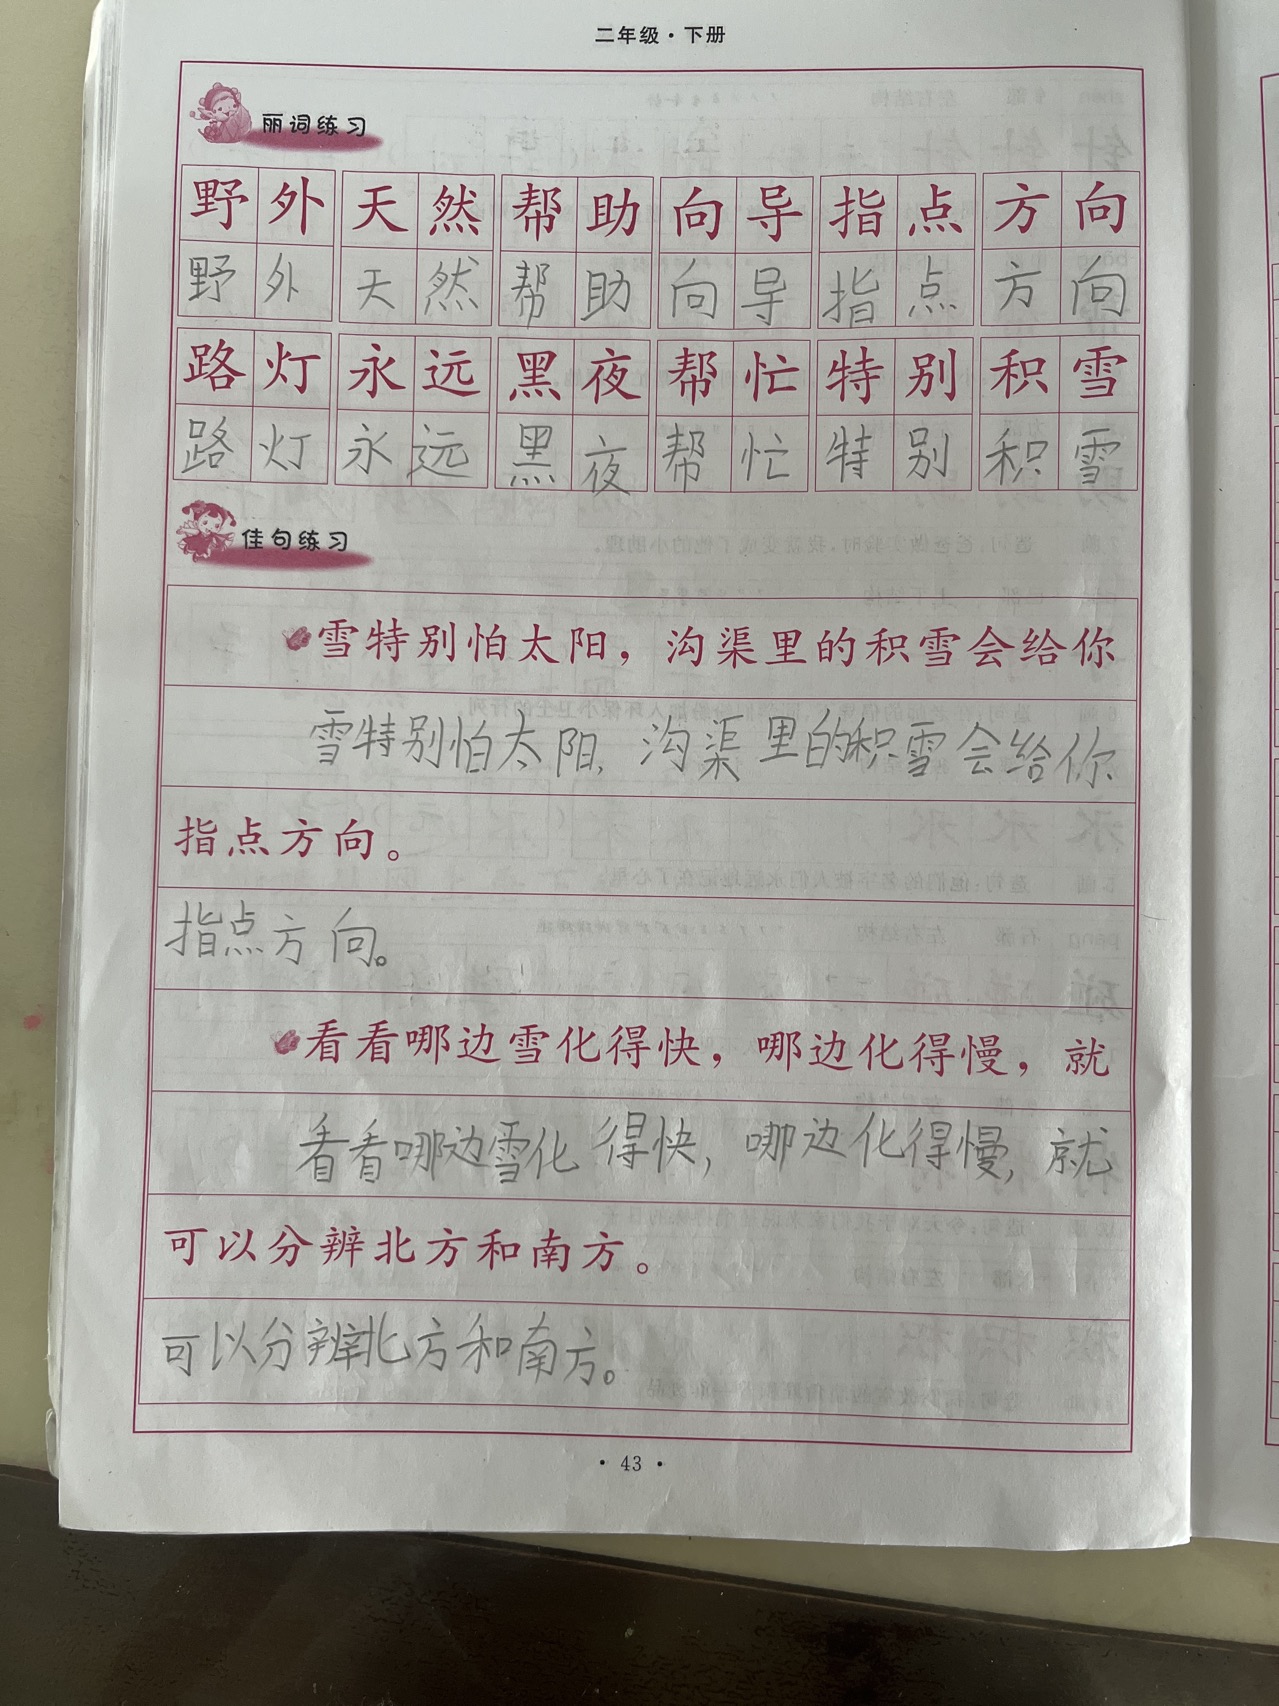 二年级·下册
丽词练习
野外 天然 帮助 向导 指点 方向
野外 天然 帮助 向导 指点 方向
路灯 永远 黑夜 帮忙 特别 积雪
路灯 永远 黑夜 帮忙 特别 积雪
佳句练习
雪特别怕太阳，沟渠里的积雪会给你
雪特别怕太阳，沟渠里的积雪会给你
指点方向。
指点方向。
看看哪边雪化得快，哪边化得慢，就
看看哪边雪化得快，哪边化得慢，就
可以分辨北方和南方。
可以分辨北方和南方。
· 43 ·